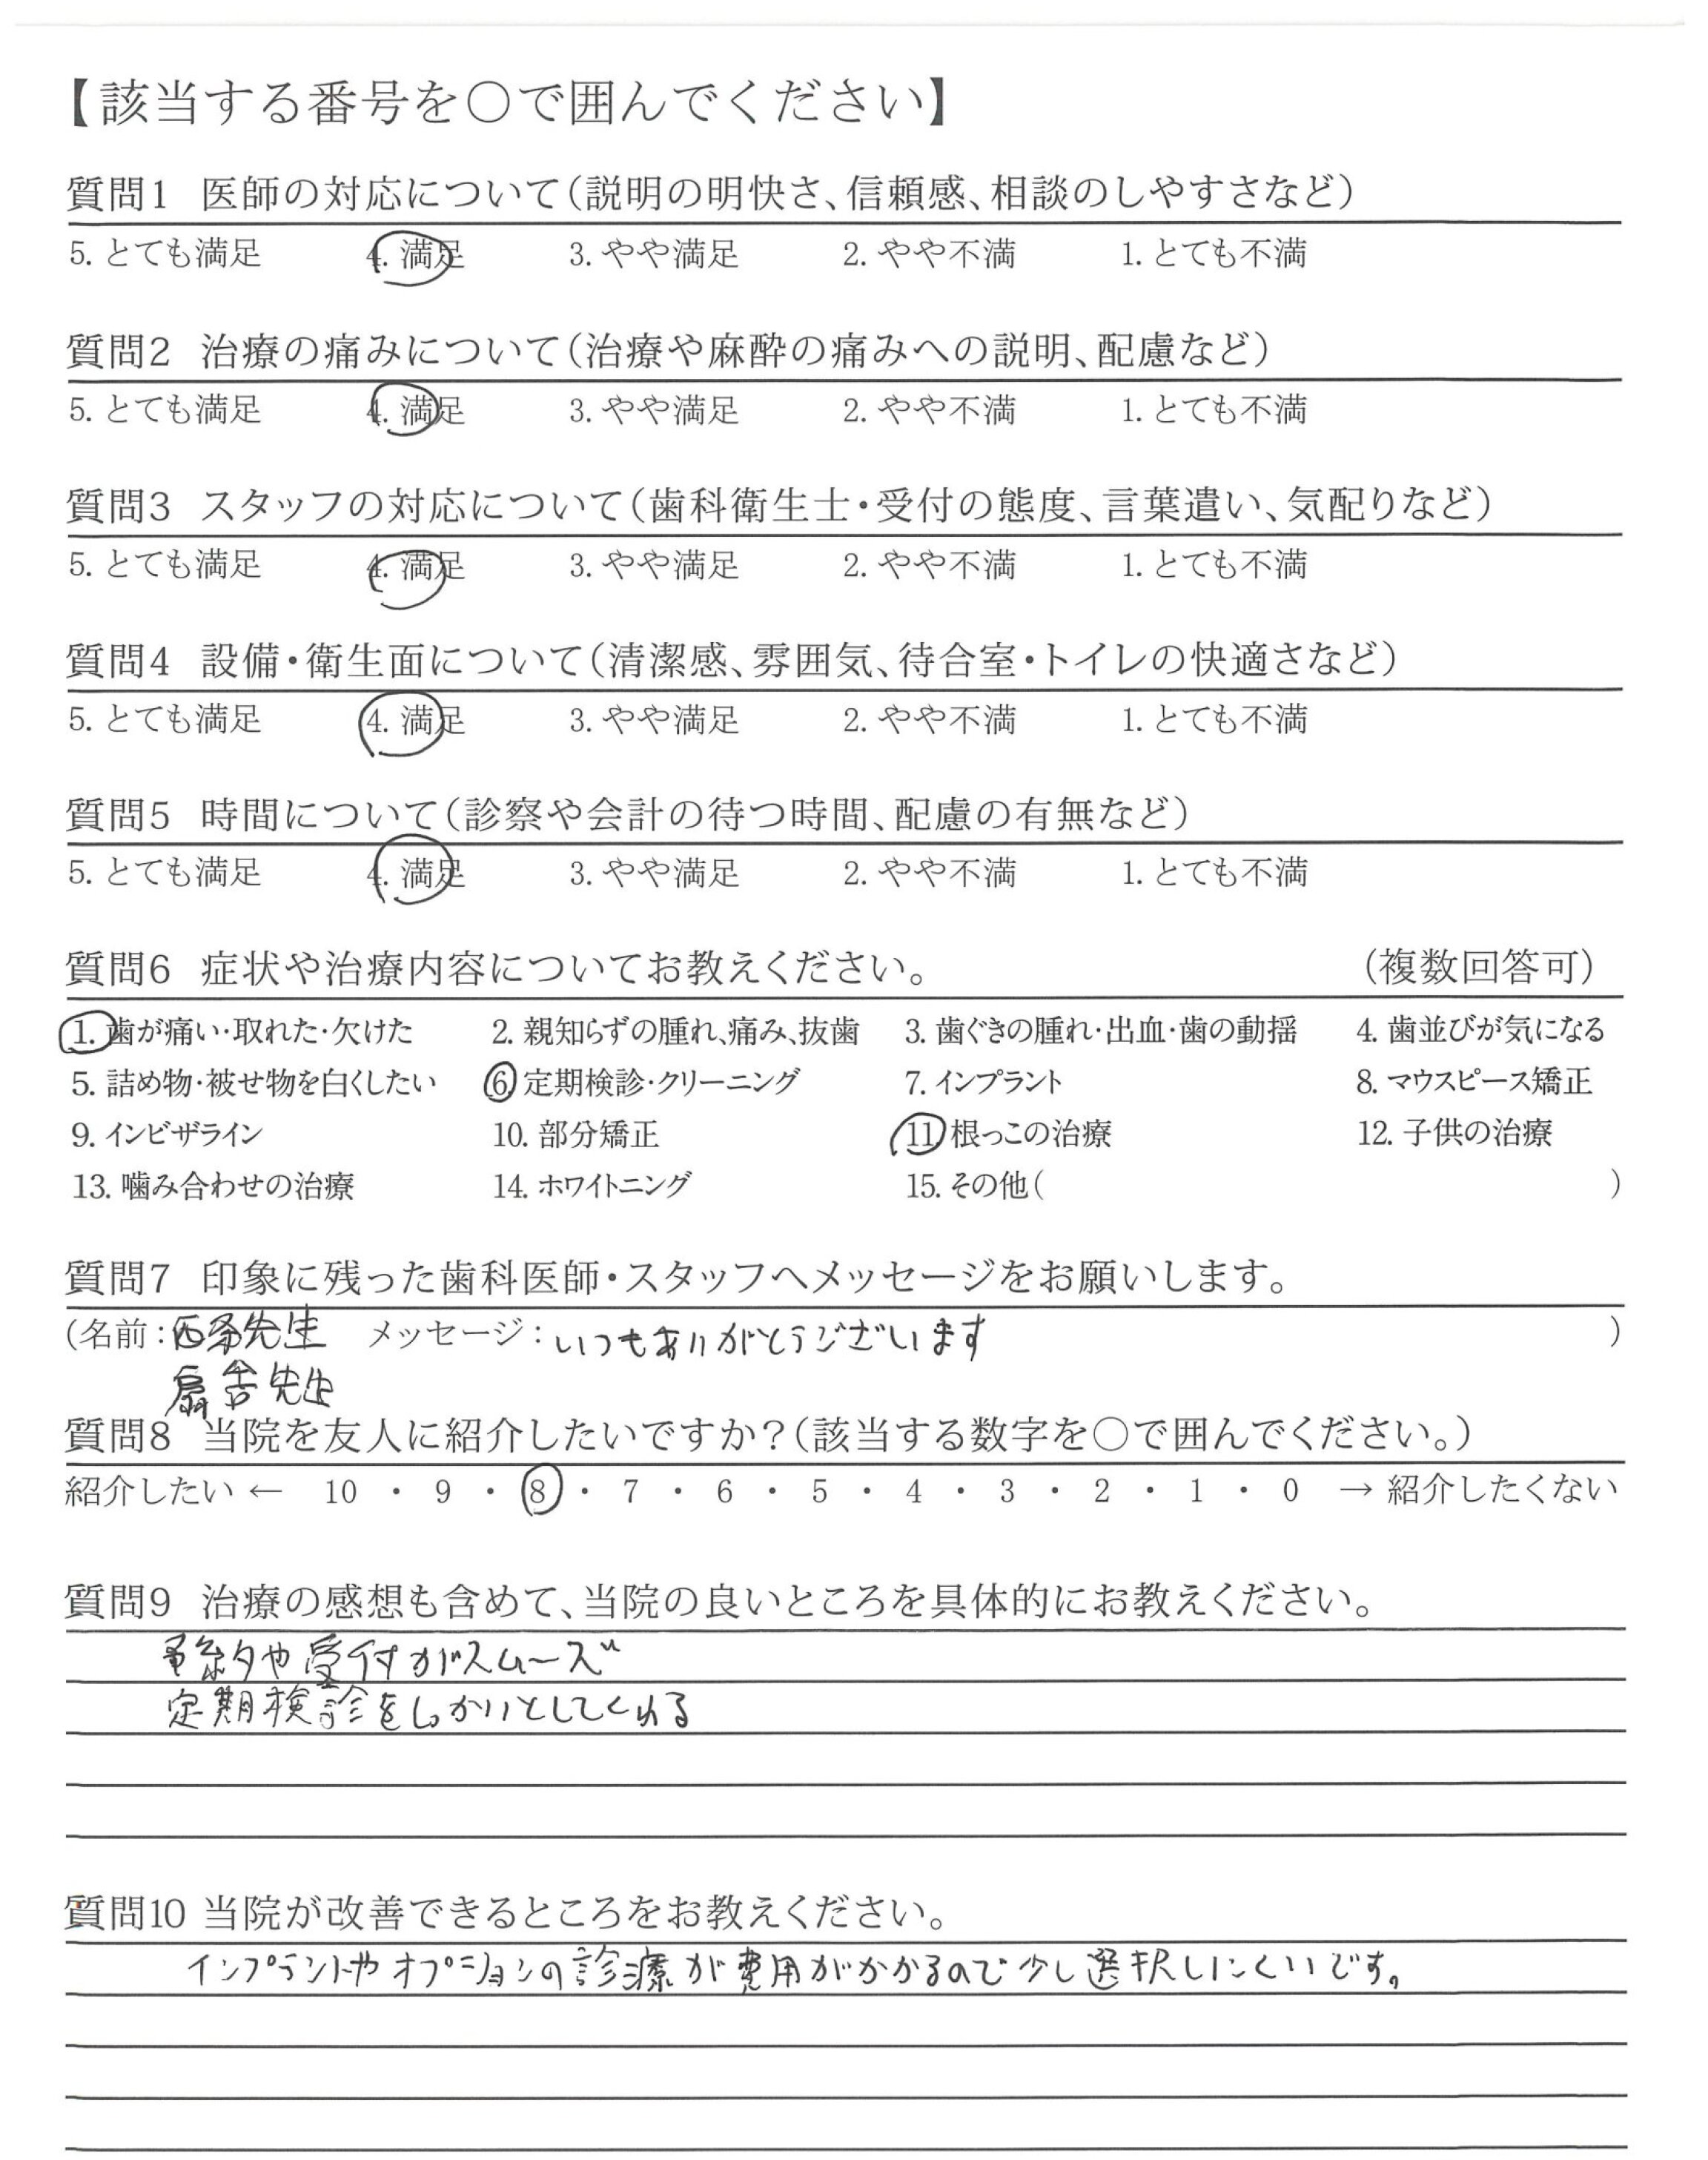 【該当する番号を○で囲んでください】
質問1 医師の対応について（説明の明快さ、信頼感、相談のしやすさなど）
5. とても満足 4. 満足 3. やや満足 2. やや不満 1. とても不満
質問2 治療の痛みについて（治療や麻酔の痛みへの説明、配慮など）
5. とても満足 4. 満足 3. やや満足 2. やや不満 1. とても不満
質問3 スタッフの対応について（歯科衛生士・受付の態度、言葉遣い、気配りなど）
5. とても満足 4. 満足 3. やや満足 2. やや不満 1. とても不満
質問4 設備・衛生面について（清潔感、雰囲気、待合室・トイレの快適さなど）
5. とても満足 4. 満足 3. やや満足 2. やや不満 1. とても不満
質問5 時間について（診察や会計の待つ時間、配慮の有無など）
5. とても満足 4. 満足 3. やや満足 2. やや不満 1. とても不満
質問6 症状や治療内容についてお教えください。 （複数回答可）
1. 歯が痛い・取れた・欠けた 2. 親知らずの腫れ、痛み、抜歯 3. 歯ぐきの腫れ・出血・歯の動揺 4. 歯並びが気になる
5. 詰め物・被せ物を白くしたい 6 定期検診・クリーニング 7. インプラント 8. マウスピース矯正
9. インビザライン 10. 部分矯正 11 根っこの治療 12. 子供の治療
13. 噛み合わせの治療 14. ホワイトニング 15. その他（ ）
質問7 印象に残った歯科医師・スタッフへメッセージをお願いします。
（名前：先生 メッセージ：いつもありがとうございます ）
先生
質問8 当院を友人に紹介したいですか？（該当する数字を○で囲んでください。）
紹介したい ← 10 ・ 9 ・ 8 ・ 7 ・ 6 ・ 5 ・ 4 ・ 3 ・ 2 ・ 1 ・ 0 → 紹介したくない
質問9 治療の感想も含めて、当院の良いところを具体的にお教えください。
予約や受付がスムーズ
定期検診をしっかりとしてくれる
質問10 当院が改善できるところをお教えください。
インプラントやオプションの診療が費用がかかるので少し選択しにくいです。